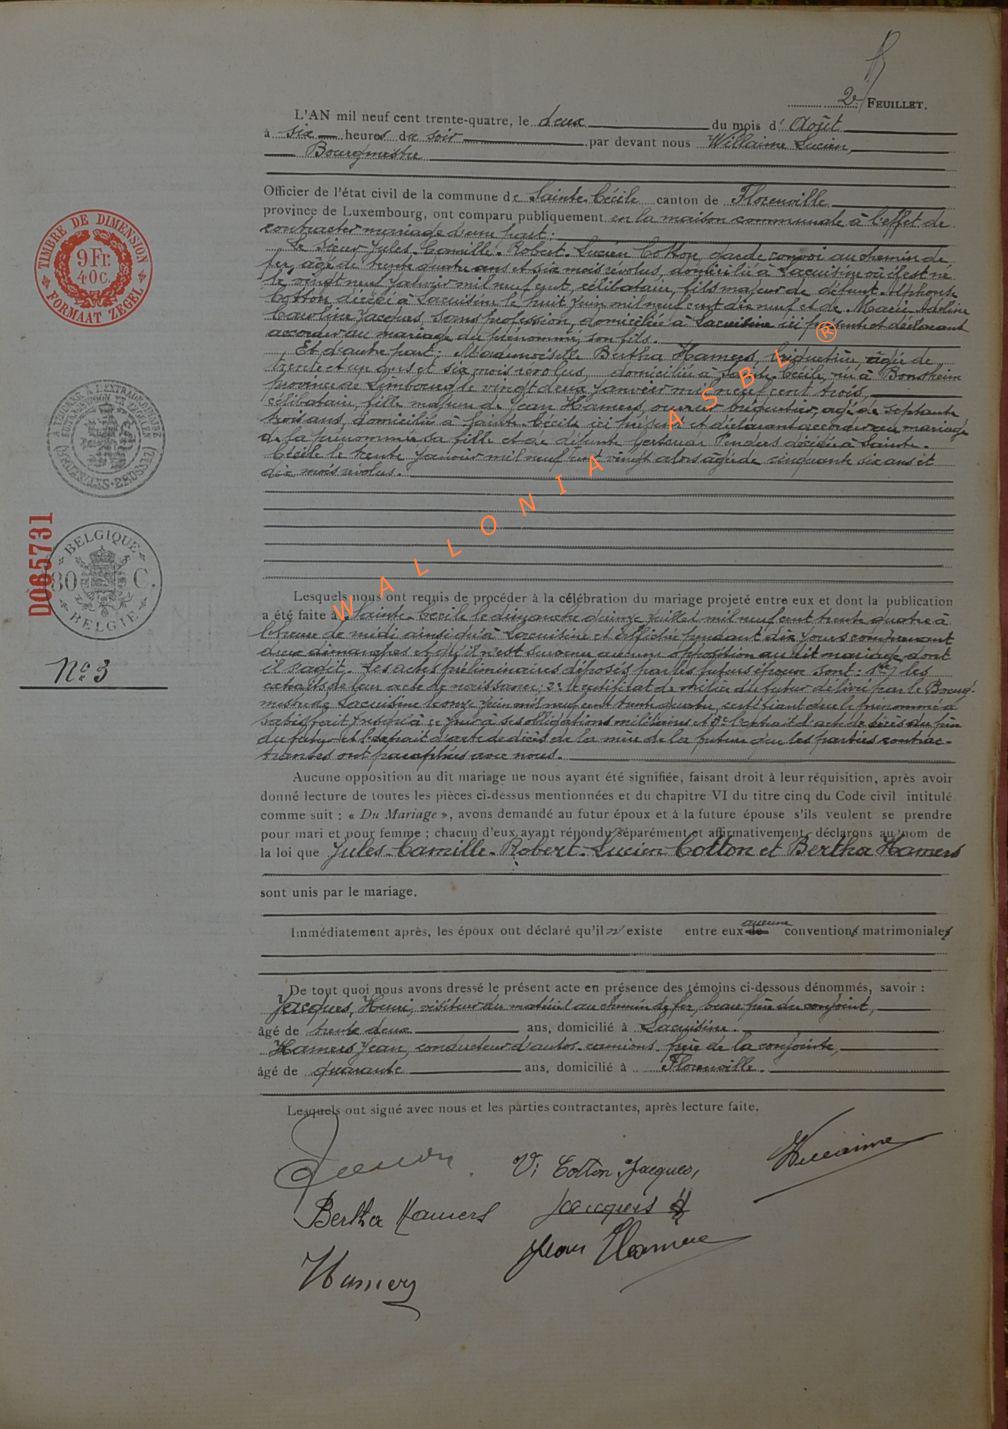 2e FEUILLET.
L'AN mil neuf cent trente-quatre, le deux du mois d'Août
à six heures du soir par devant nous Willaime Lucien,
Bourgmestre
Officier de l'état civil de la commune de Sainte-Cécile canton de Florenville
province de Luxembourg, ont comparu publiquement en la maison communale à l'effet de
contracter mariage d'une part :
Le sieur Jules-Camille-Robert-Lucien Cotton, garde convoi au chemin de
fer, âgé de trente quatre ans et six mois révolus, domicilié à Lacuisine où il est né
le vingt neuf janvier mil neuf cent, célibataire, fils majeur de défunt Alphonse
Cotton, décédé à Lacuisine le huit juin mil neuf cent dix neuf et de Marie
Caroline Jacques, sans profession, domiciliée à Lacuisine ici présente et déclarant
accorder au mariage du prénommé, son fils.
Et d'autre part : Mademoiselle Bertha Hamers, briquetière, âgée de
trente et un ans et six mois révolus, domiciliée à Sainte-Cécile, née à
province de Limbourg le vingt deux janvier mil neuf cent trois,
célibataire, fille majeure de Jean Hamers, ouvrier briquetier, âgé de septante
trois ans, domicilié à Sainte-Cécile ici présent et déclarant accorder au mariage
de la prénommée sa fille et de défunte décédée à Sainte-
Cécile le trente janvier mil neuf cent vingt alors âgée de cinquante six ans et
dix mois révolus.
Lesquels nous ont requis de procéder à la célébration du mariage projeté entre eux et dont la publication
a été faite à Sainte-Cécile le dimanche quinze juillet mil neuf cent trente quatre à
l'heure de midi ainsi qu'à Lacuisine et affichée pendant dix jours comprenant
deux dimanches et qu'il n'est survenu aucune opposition au dit mariage dont
il s'agit. Les actes préliminaires déposés par les futurs époux sont : 1° les
extraits de leur acte de naissance ; 2° le certificat de milice du futur délivré par le Bourg-
mestre de Lacuisine le onze juin mil neuf cent trente quatre, certifiant que le prénommé a
satisfait jusqu'à ce jour à ses obligations militaires et 3° l'extrait d'acte de décès du père
du futur et l'extrait d'acte de décès de la mère de la future que les parties contrac-
tantes ont paraphés avec nous.
Aucune opposition au dit mariage ne nous ayant été signifiée, faisant droit à leur réquisition, après avoir
donné lecture de toutes les pièces ci-dessus mentionnées et du chapitre VI du titre cinq du Code civil intitulé
comme suit : « Du Mariage », avons demandé au futur époux et à la future épouse s'ils veulent se prendre
pour mari et pour femme ; chacun d'eux ayant répondu séparément et affirmativement, déclarons au nom de
la loi que Jules-Camille-Robert-Lucien Cotton et Bertha Hamers
sont unis par le mariage.
Immédiatement après, les époux ont déclaré qu'il n'existe entre eux aucune conventions matrimoniales
De tout quoi nous avons dressé le présent acte en présence des témoins ci-dessous dénommés, savoir :
Jacques, Henri, visiteur du matériel au chemin de fer, beau frère du conjoint,
âgé de trente deux ans, domicilié à Lacuisine.
Hamers Jean, conducteur d'autos-camions, frère de la conjointe,
âgé de quarante ans, domicilié à Florenville.
Lesquels ont signé avec nous et les parties contractantes, après lecture faite.
Vi Cotton Jacques,
Willaime
Bertha Hamers
Jacques H
Jean Hamers
Hamers
TIMBRE DE DIMENSION
9 Fr.
40 C.
FORMAAT ZEGEL
D085731
BELGIQUE
80 C.
BELGIE
N° 3
WALLONIA ASBL ®